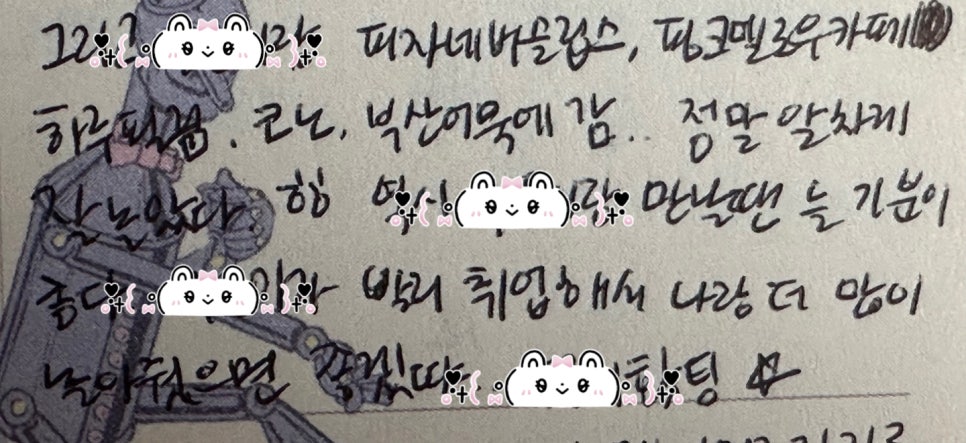 그리고 랑 피자네버슬립스, 핑크멜로우카페
하루필름, 코노, 부산어묵에 감.. 정말 알차게
잘 놀았다. 힝 역시 랑 만날땐 늘 기분이
좋다 이가 빨리 취업해서 나랑 더 많이
놀아줬으면 좋겠따. 화팅 ☆